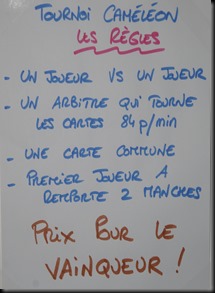 TOURNOI CAMÉLÉON
LES RÈGLES
- UN JOUEUR VS UN JOUEUR
- UN ARBITRE QUI TOURNE
LES CARTES 84 p/min
- UNE CARTE COMMUNE
- PREMIER JOUEUR A
REMPORTE 2 MANCHES
PRIX POUR LE
VAINQUEUR !